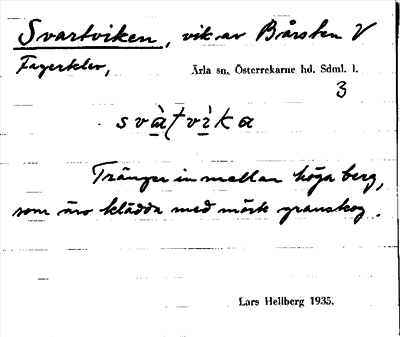 Svartviken, vik av Bårsten V
Fagerklev,
Ärla sn. Österrekarne hd. Sdml. l.
3
svàṭvìka
Tränger in mellan höga berg,
som äro klädda med mörk granskog.
Lars Hellberg 1935.